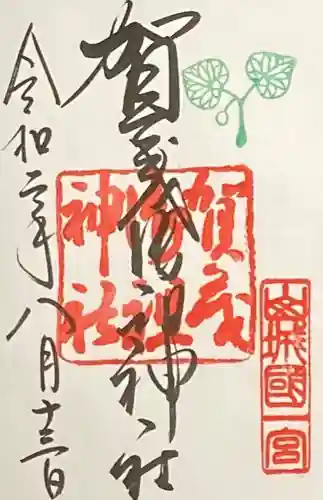 山城國一宮
賀茂御祖神社
賀茂
御祖
神社
令和二年八月十三日